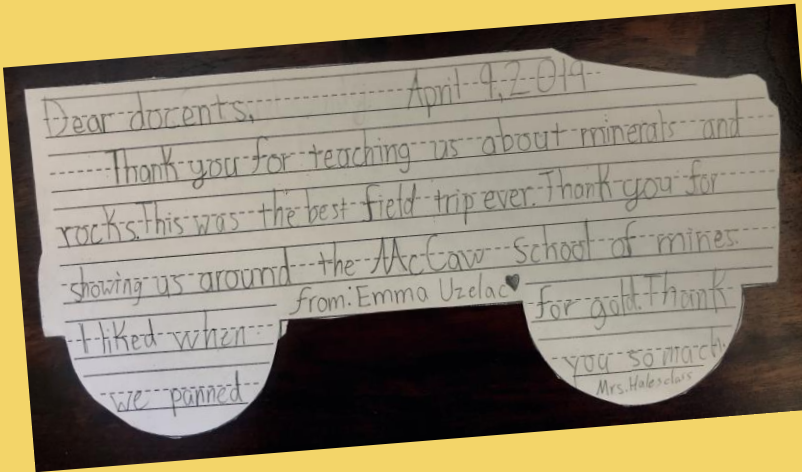 April 9, 2019
Dear docents,
Thank you for teaching us about minerals and
rocks. This was the best field trip ever. Thank you for
showing us around the McCaw School of mines.
I liked when
we panned
for gold. Thank
you so mach.
from: Emma Uzelac♥
Mrs. Halesclass